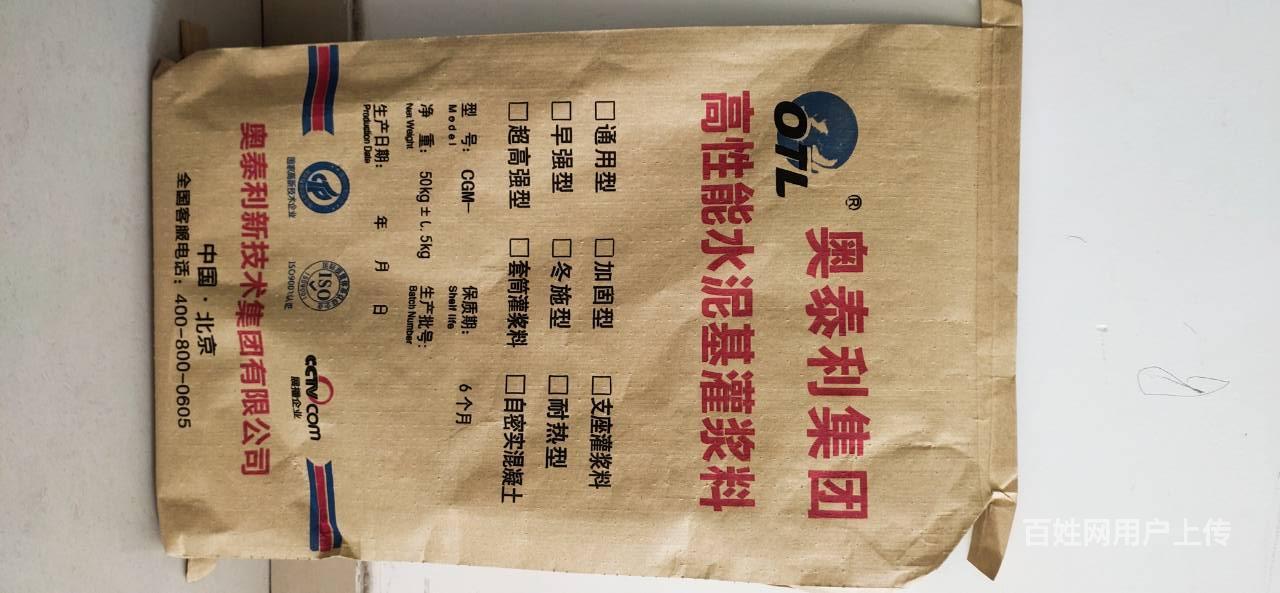 OTL ®
奥泰利集团
高性能水泥基灌浆料
□通用型 □加固型 □支座灌浆料
□早强型 □冬施型 □耐热型
□超高强型 □套筒灌浆料 □自密实混凝土
型 号: CGM- 保质期: 6个月
Model Shelf life
净 重: 50kg±1.5kg 生产批号:
Net Weight Batch Number
生产日期: 年 月 日
Production Date
国家高新技术企业
ISO
ISO9001认证
CCTV.com
展播企业
奥泰利新技术集团有限公司
中国·北京
全国客服电话: 400-800-0605
百姓网用户上传